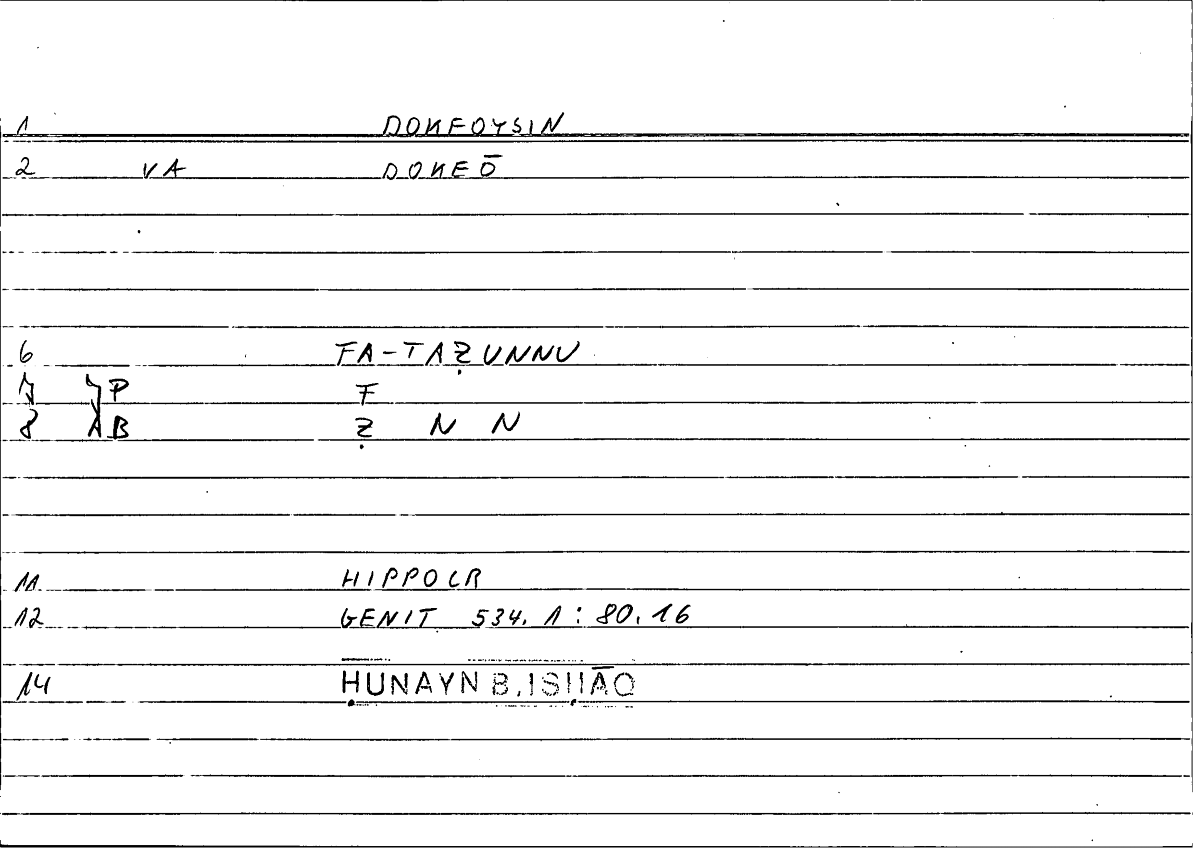 1 DOKEOYSIN
2 VA DOKEŌ
6 FA-TAẒUNNU
7 JP F
8 AB Ẓ N N
11 HIPPOCR
12 GENIT 534.1:80.16
14 ḤUNAYN B.ISḤĀQ